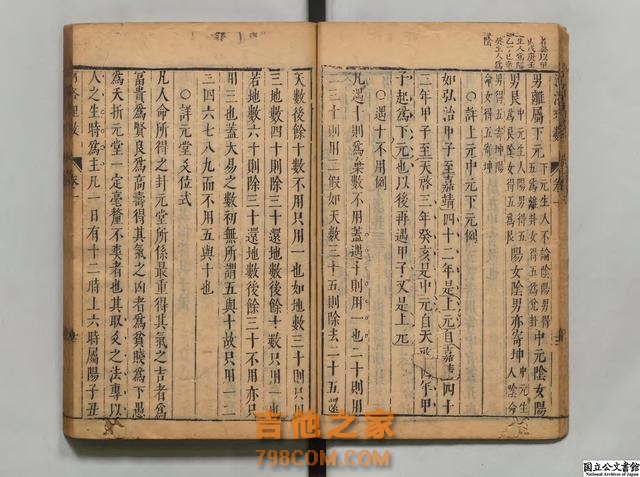 男離屬下元
下元生人不論陰陽男得
五爲離卦女得五爲兌卦
中元陰女陽
男艮
中元生陽男得五
爲艮陰女得五爲艮
陽女陰男亦寄坤
中元生
人陰令
命女得五寄坤陽
○詳上元中元下元例
如弘治甲子至嘉靖四十二年是上元自嘉靖四十
二年甲子至天啓三年癸亥是中元自天啓四年甲
子起爲下元也以後再遇甲子又是上元
○遇十不用例
凡遇十則爲衆數不用蓋遇十則用一也二十則用
二三十則用三假如天數三十五則除去二十五還
天數後餘十數不用只用一也如地數三十則只用
三地數四十則除三十還地數後餘十數只用一
若地數六十則除三十還地數後餘三十不用亦只
用三也蓋大易之數初無所謂五與十故只用一二
三四六七八九而不用五與十也
○詳元堂爻位式
凡人命所得之卦元堂所係最重得其氣之吉者爲
富貴爲賢良爲高壽得其氣之凶者爲貧賤爲下愚
爲夭折元堂一定毫釐不爽者也其取爻之法專以
人之生時爲主凡一日有十二時上六時屬陽子丑
卷一
吉他之家
798COM.COM
国立公文書館
National Archives of Japan